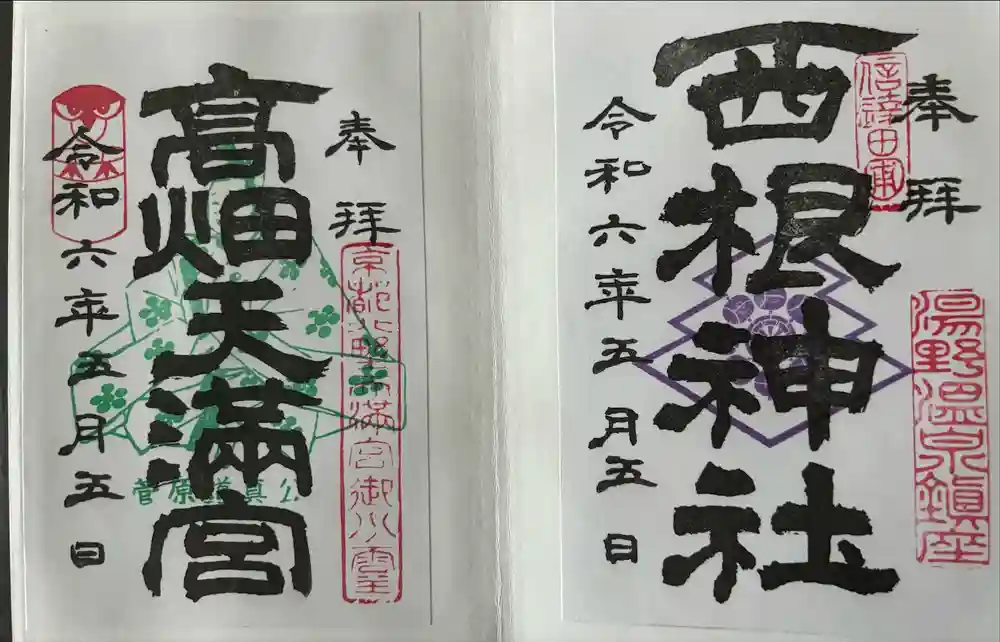 奉拝
信達田東
西根神社
湯野温泉鎮座
令和六年五月五日
奉拝
京都北野天満宮御分霊
髙畑天満宮
菅原道真公
令和六年五月五日